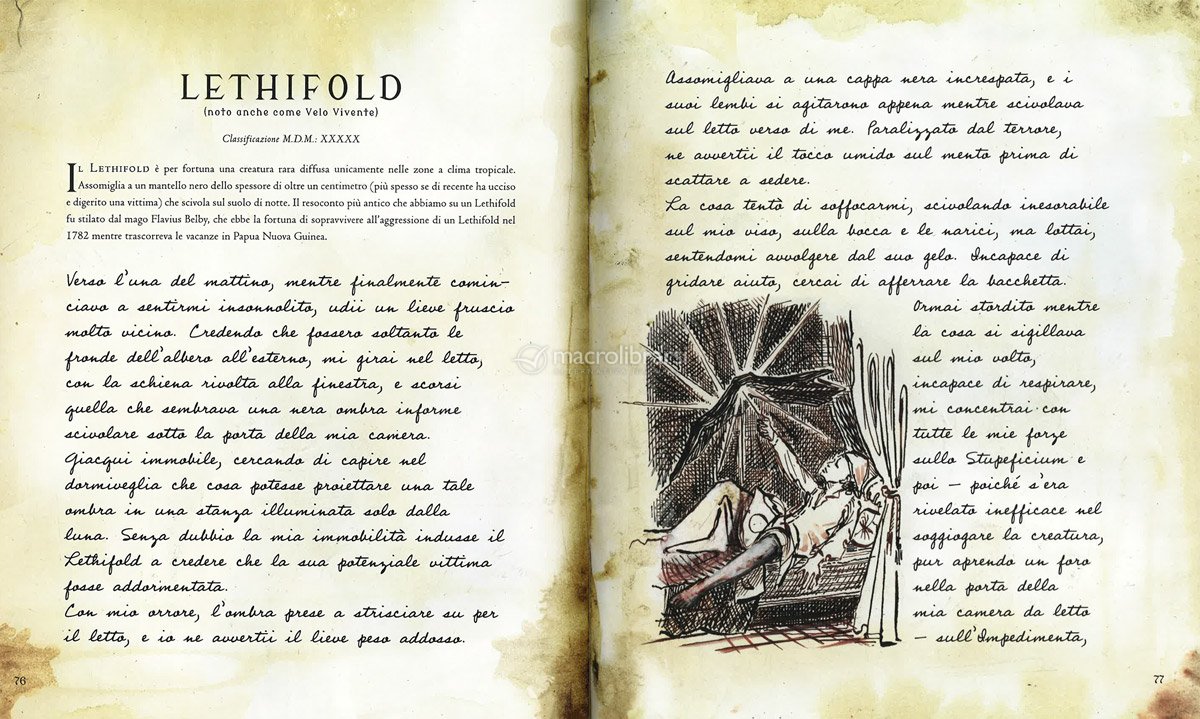 LETHIFOLD
(noto anche come Velo Vivente)
Classificazione M.D.M.: XXXXX
IL LETHIFOLD è per fortuna una creatura rara diffusa unicamente nelle zone a clima tropicale.
Assomiglia a un mantello nero dello spessore di oltre un centimetro (più spesso se di recente ha ucciso
e digerito una vittima) che scivola sul suolo di notte. Il resoconto più antico che abbiamo su un Lethifold
fu stilato dal mago Flavius Belby, che ebbe la fortuna di sopravvivere all'aggressione di un Lethifold nel
1782 mentre trascorreva le vacanze in Papua Nuova Guinea.
Verso l'una del mattino, mentre finalmente comin-
ciavo a sentirmi insonnolito, udii un lieve fruscio
molto vicino. Credendo che fossero soltanto le
fronde dell'albero all'esterno, mi girai nel letto,
con la schiena rivolta alla finestra, e scorsi
quella che sembrava una nera ombra informe
scivolare sotto la porta della mia camera.
Giacqui immobile, cercando di capire nel
dormiveglia che cosa potesse proiettare una tale
ombra in una stanza illuminata solo dalla
luna. Senza dubbio la mia immobilità indusse il
Lethifold a credere che la sua potenziale vittima
fosse addormentata.
Con mio orrore, l'ombra prese a strisciare su per
il letto, e io ne avvertii il lieve peso addosso.
76
Assomigliava a una cappa nera increspata, e i
suoi lembi si agitarono appena mentre scivolava
sul letto verso di me. Paralizzato dal terrore,
ne avvertii il tocco umido sul mento prima di
scattare a sedere.
La cosa tentò di soffocarmi, scivolando inesorabile
sul mio viso, sulla bocca e le narici, ma lottai,
sentendomi avvolgere dal suo gelo. Incapace di
gridare aiuto, cercai di afferrare la bacchetta.
Ormai stordito mentre
la cosa si sigillava
sul mio volto,
incapace di respirare,
mi concentrai con
tutte le mie forze
sullo Stupeficium e
poi – poiché s'era
rivelato inefficace nel
soggiogare la creatura,
pur aprendo un foro
nella porta della
mia camera da letto
– sull'Impedimenta,
77
macrolibrarsi